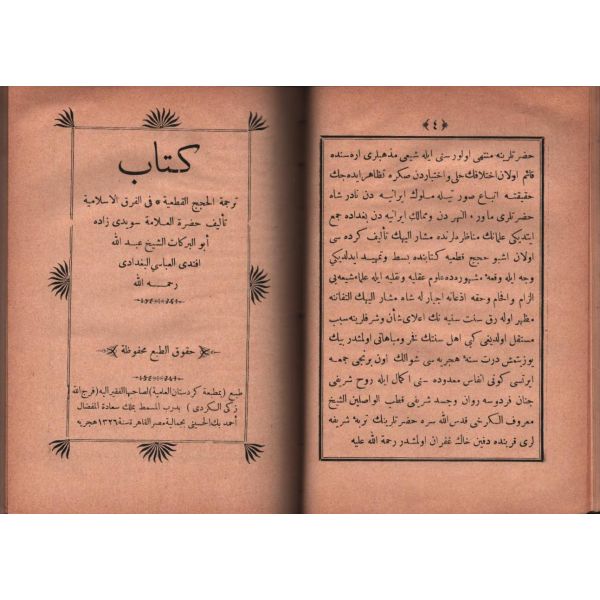 ﴿٤﴾
حضرتلرينه منتهى اولور سنى ايله شيعى مذهبلرى اره سنده
قائم اولان اختلافك حلى واختياردن صكره تظاهر ايده جك
حقيقته اتباع صور تيله ملوك ايرانيه دن نادر شاه
حضرتلرى ماور ٠ النهر دن وممالك ايرانيه دن بغداده جمع
ايتديكى علمانك مناظره لرنده مشار اليهك تأليف كرده سى
اولان اشبو حجج قطعيه كتابنده بسط وتمهيد ايدلديكى
وجه ايله وقعهٔ مشهوره ده علوم عقليه ونقليه ايله علماء شيعه يى
الزام وافحام وحقه اذعانه اجبار له شاه مشار اليهك التفاتنه
مظهر اوله رق سنت سنيه نك اعلاى شأن وشرفلرينه سبب
مستقل اولديغى كبى اهل سنتك فخر ومباهاتى اولمشدر بيك
يوزيتمش درت سنهٔ هجريه سى شوالك اون برنجى جمعه
ايرتسى كونى انفاس معدوده سنى اكمال ايله روح شريفى
جنان فردوسه روان وجسد شريفى قطب الواصلين الشيخ
معروف الكرخى قدس الله سره حضرتلرينك تربهٔ شريفه
لرى قربنده دفين خاك غفران اولمشدر رحمة الله عليه
كتاب
ترجمة الحجج القطعية * فى الفرق الاسلامية
تأليف حضرة العلامة سويدى زاده
أبو البركات الشيخ عبد الله
افندى العباسى البغدادى
رحمه الله
﴿حقوق الطبع محفوظة﴾
طبع (بمطبعة كردستان العلمية) لصاحبها الفقير اليه (فرج الله
زكى الكردى) بدرب المسمط بملك سعادة المفضال
أحمد بك الحسينى بجمالية مصر القاهرة سنة ١٣٢٦ هجريه